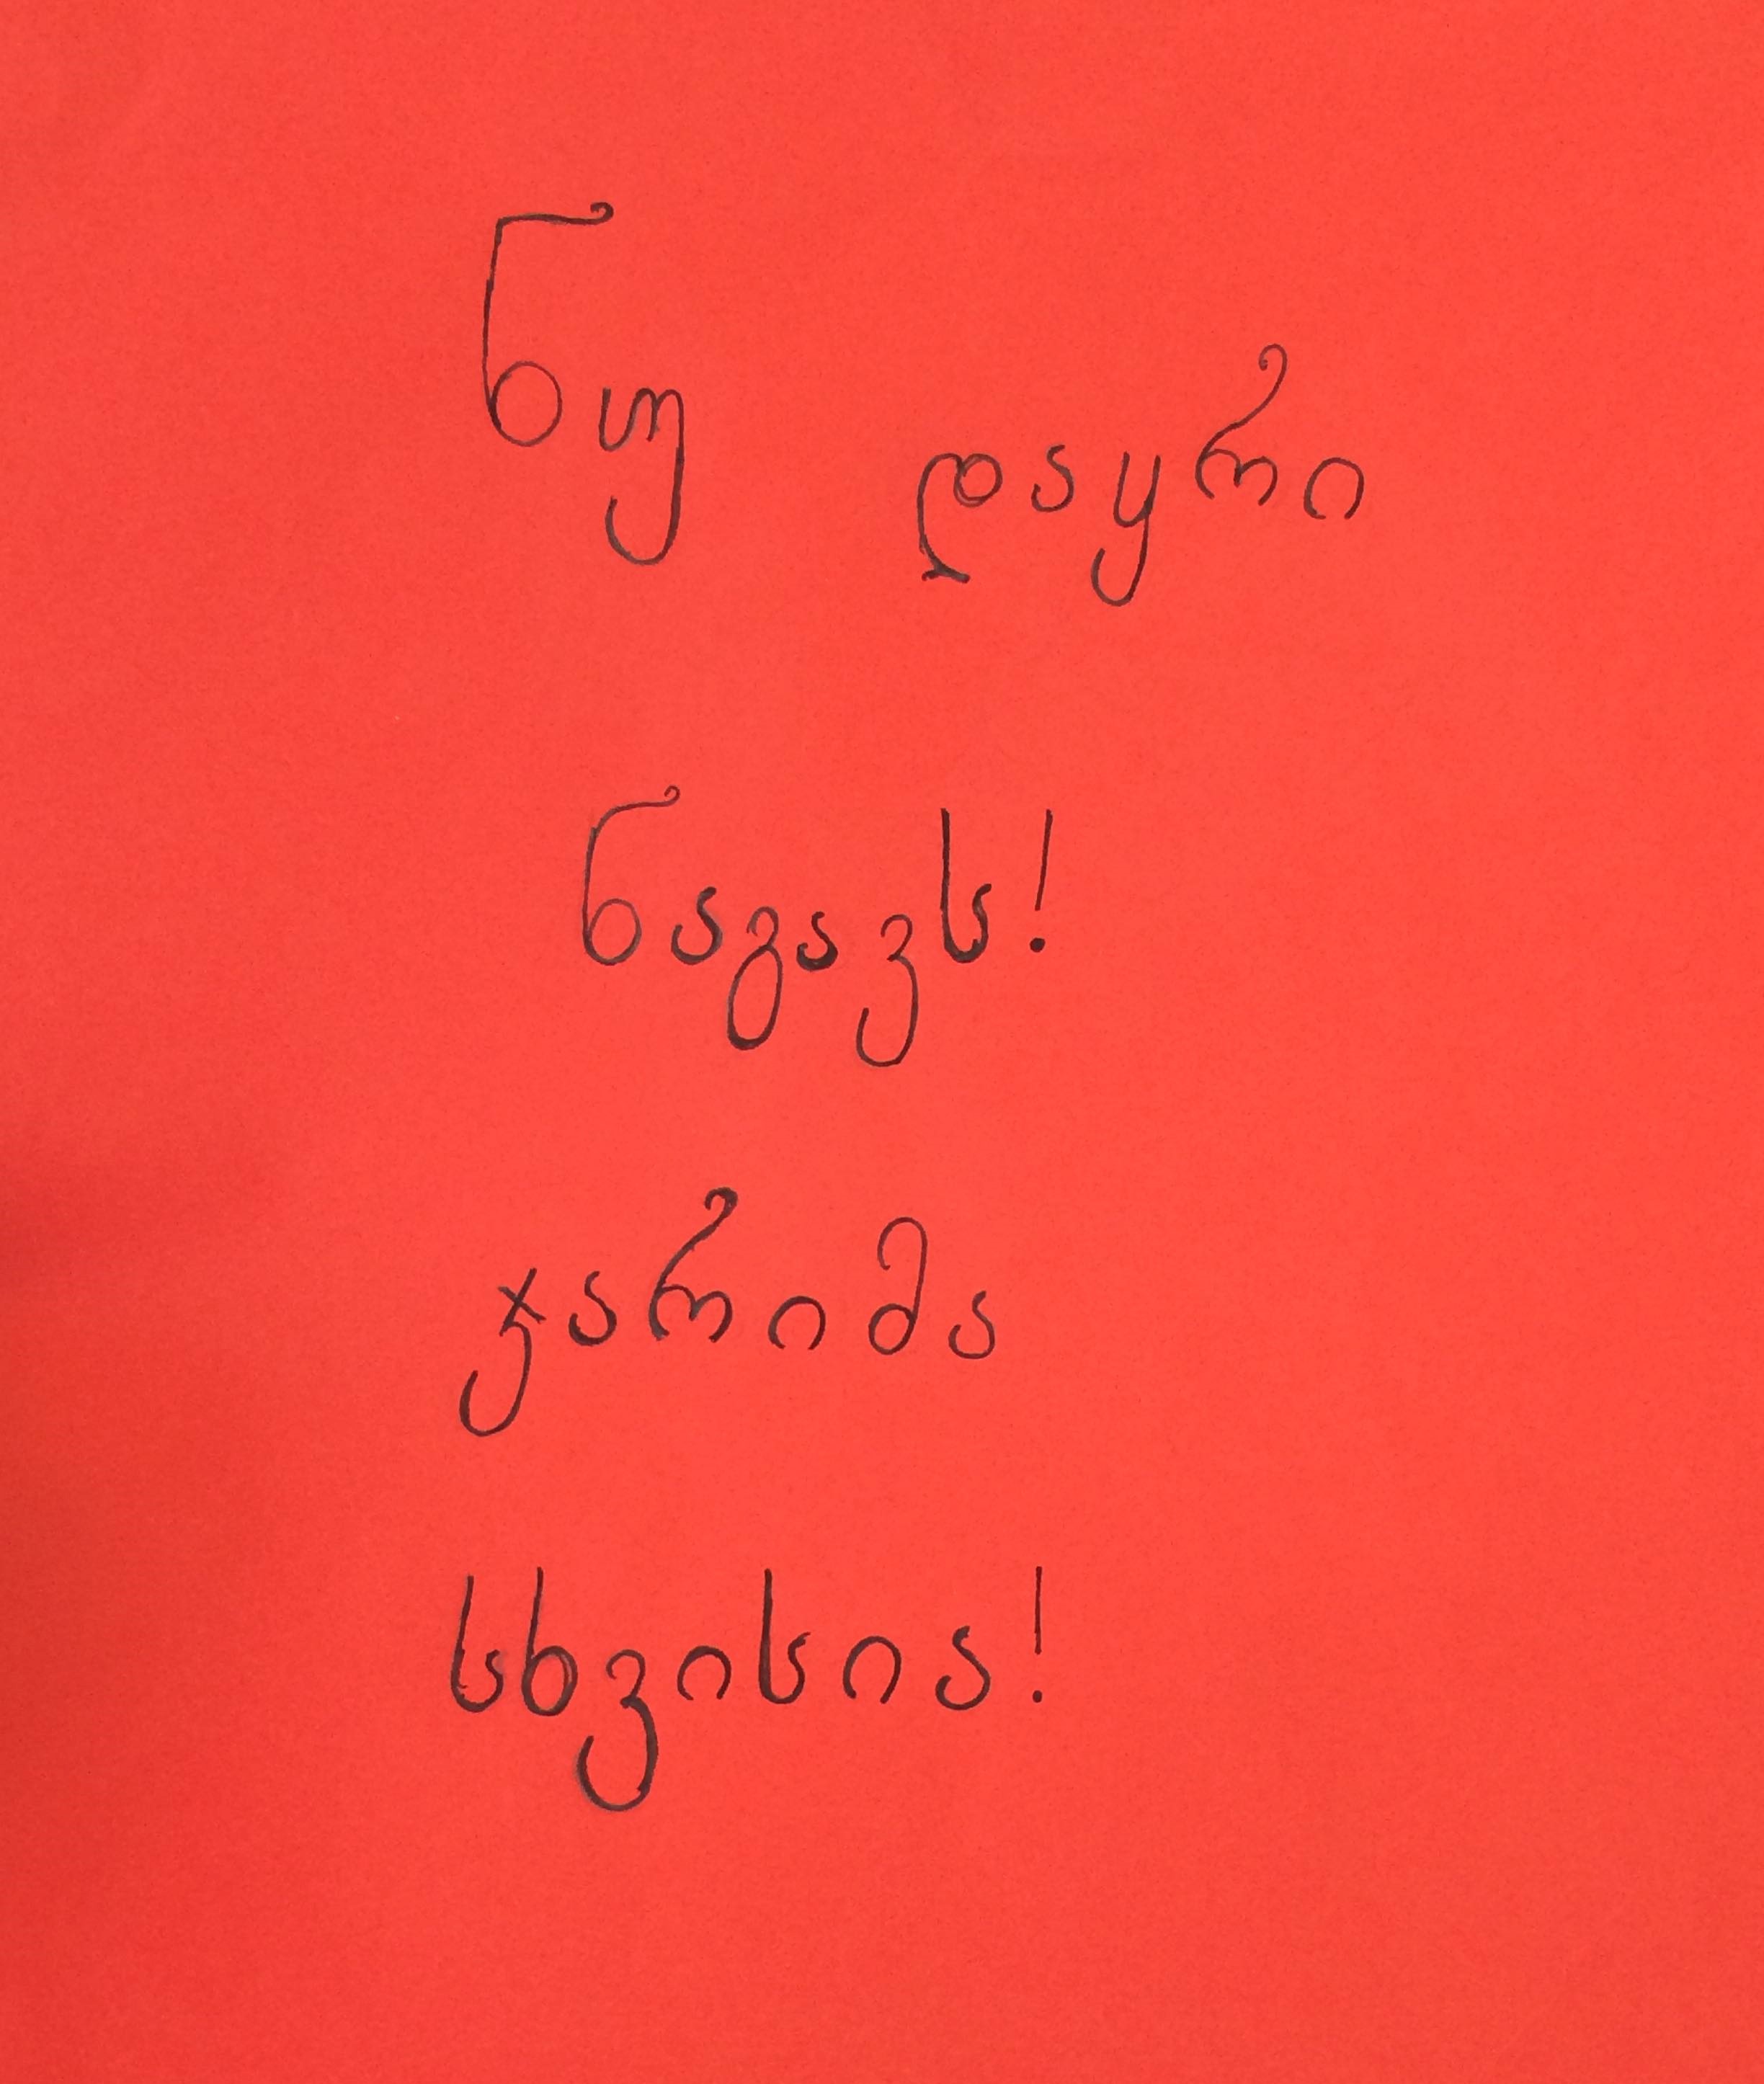 ნუ დაყრი
ნაგავს!
ჯარიმა
სხვისია!